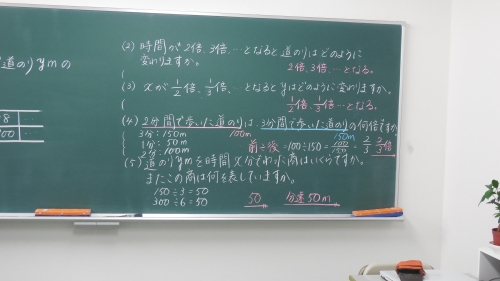 道のりymの
8 …
100 …
(2) 時間が2倍、3倍、…となると道のりはどのように
変わりますか。
2倍、3倍、…となる。
(
(3) xが1/2倍、1/3倍、…となるとyはどのように変わりますか。
(
1/2倍、1/3倍…となる。
(4) 2分間で歩いた道のりは、3分間で歩いた道のりの何倍ですか
100m 150m
3分:150m
1分:50m
2分:100m
前÷後=100÷150=100/150=2/3 2/3倍
(5) 道のりymを時間x分でわった商はいくらですか。
またこの商は何を表していますか。
150÷3=50
300÷6=50
50 分速50m